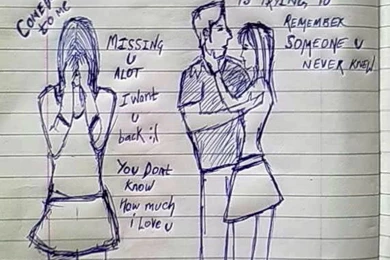 to me
MISSING
U
ALOT
I want
u
back :(
You Dont
Know
How much
i Love u
IS TRYING TO
REMEMBER
SOMEONE U
NEVER KNEW